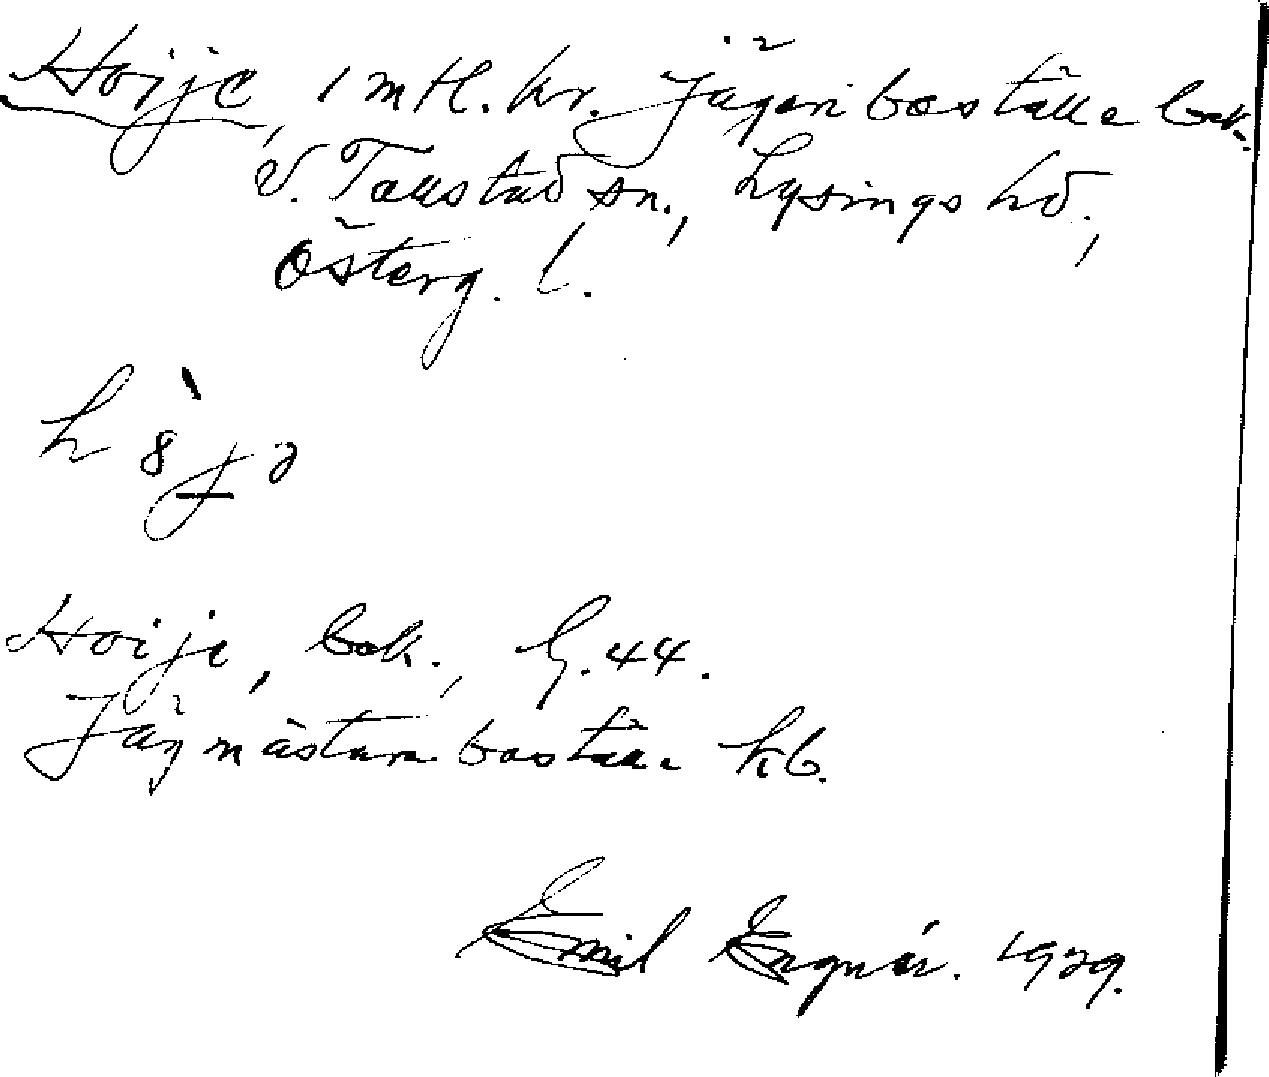 Hoije, 1 mtl. kr. Jägeriboställe bek.
V. Tollstad sn., Lysings hd.,
Österg. l.
h
Hoije, bek., G. 44.
Jägmästareboställe kb.
Emil Engnér. 1929.